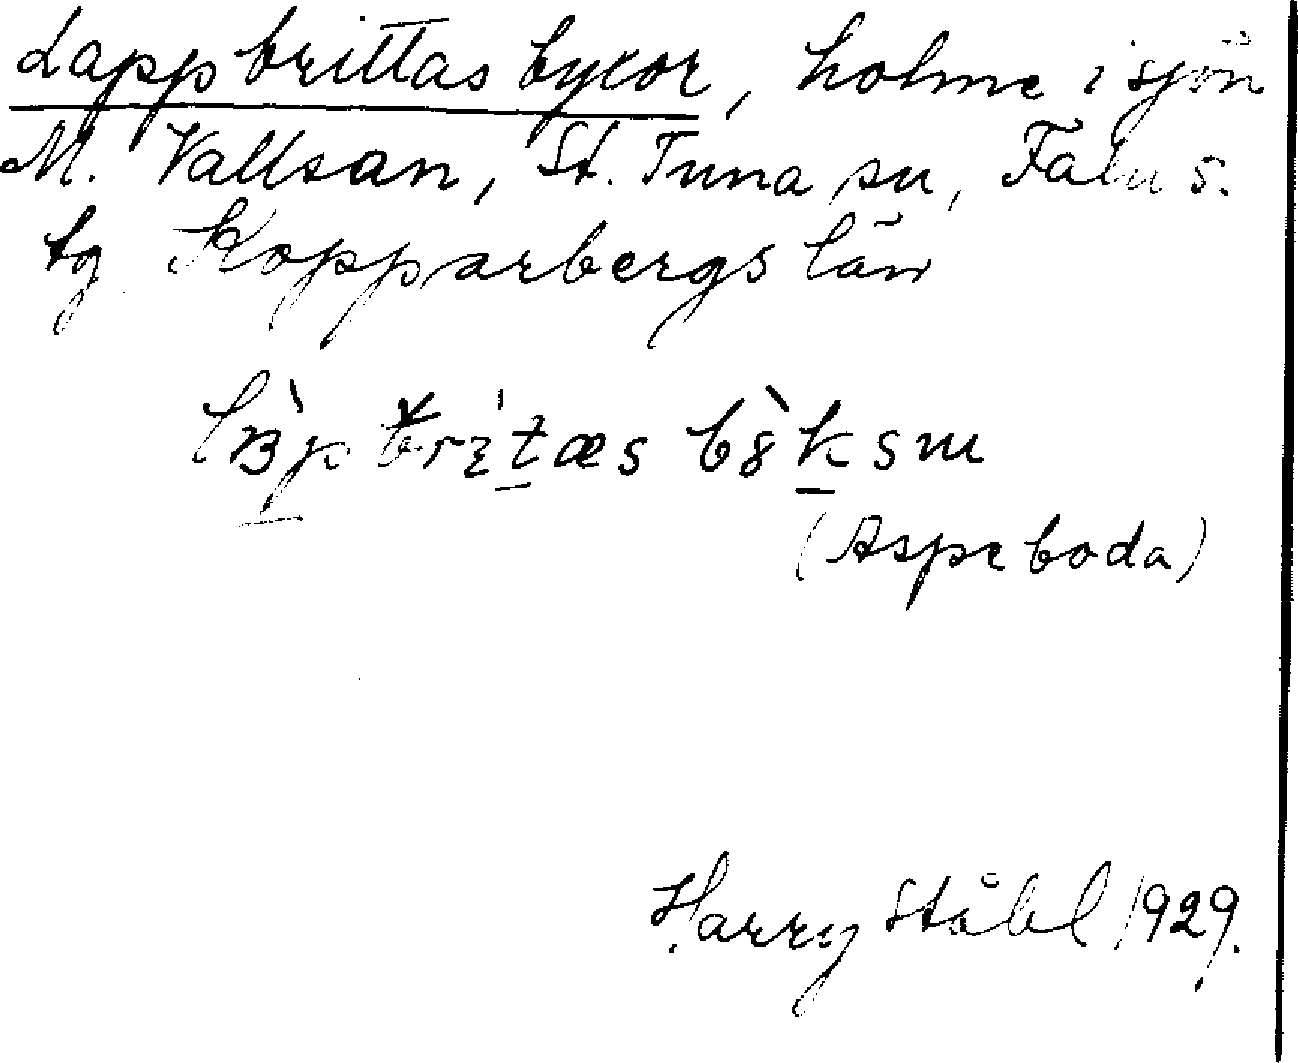 Lappbrittas byxor, holme i sjön
M. Vallsan, St. Tuna sn, Falu s.
tg Kopparbergs län
(Aspeboda)
Harry Ståhl 1929.